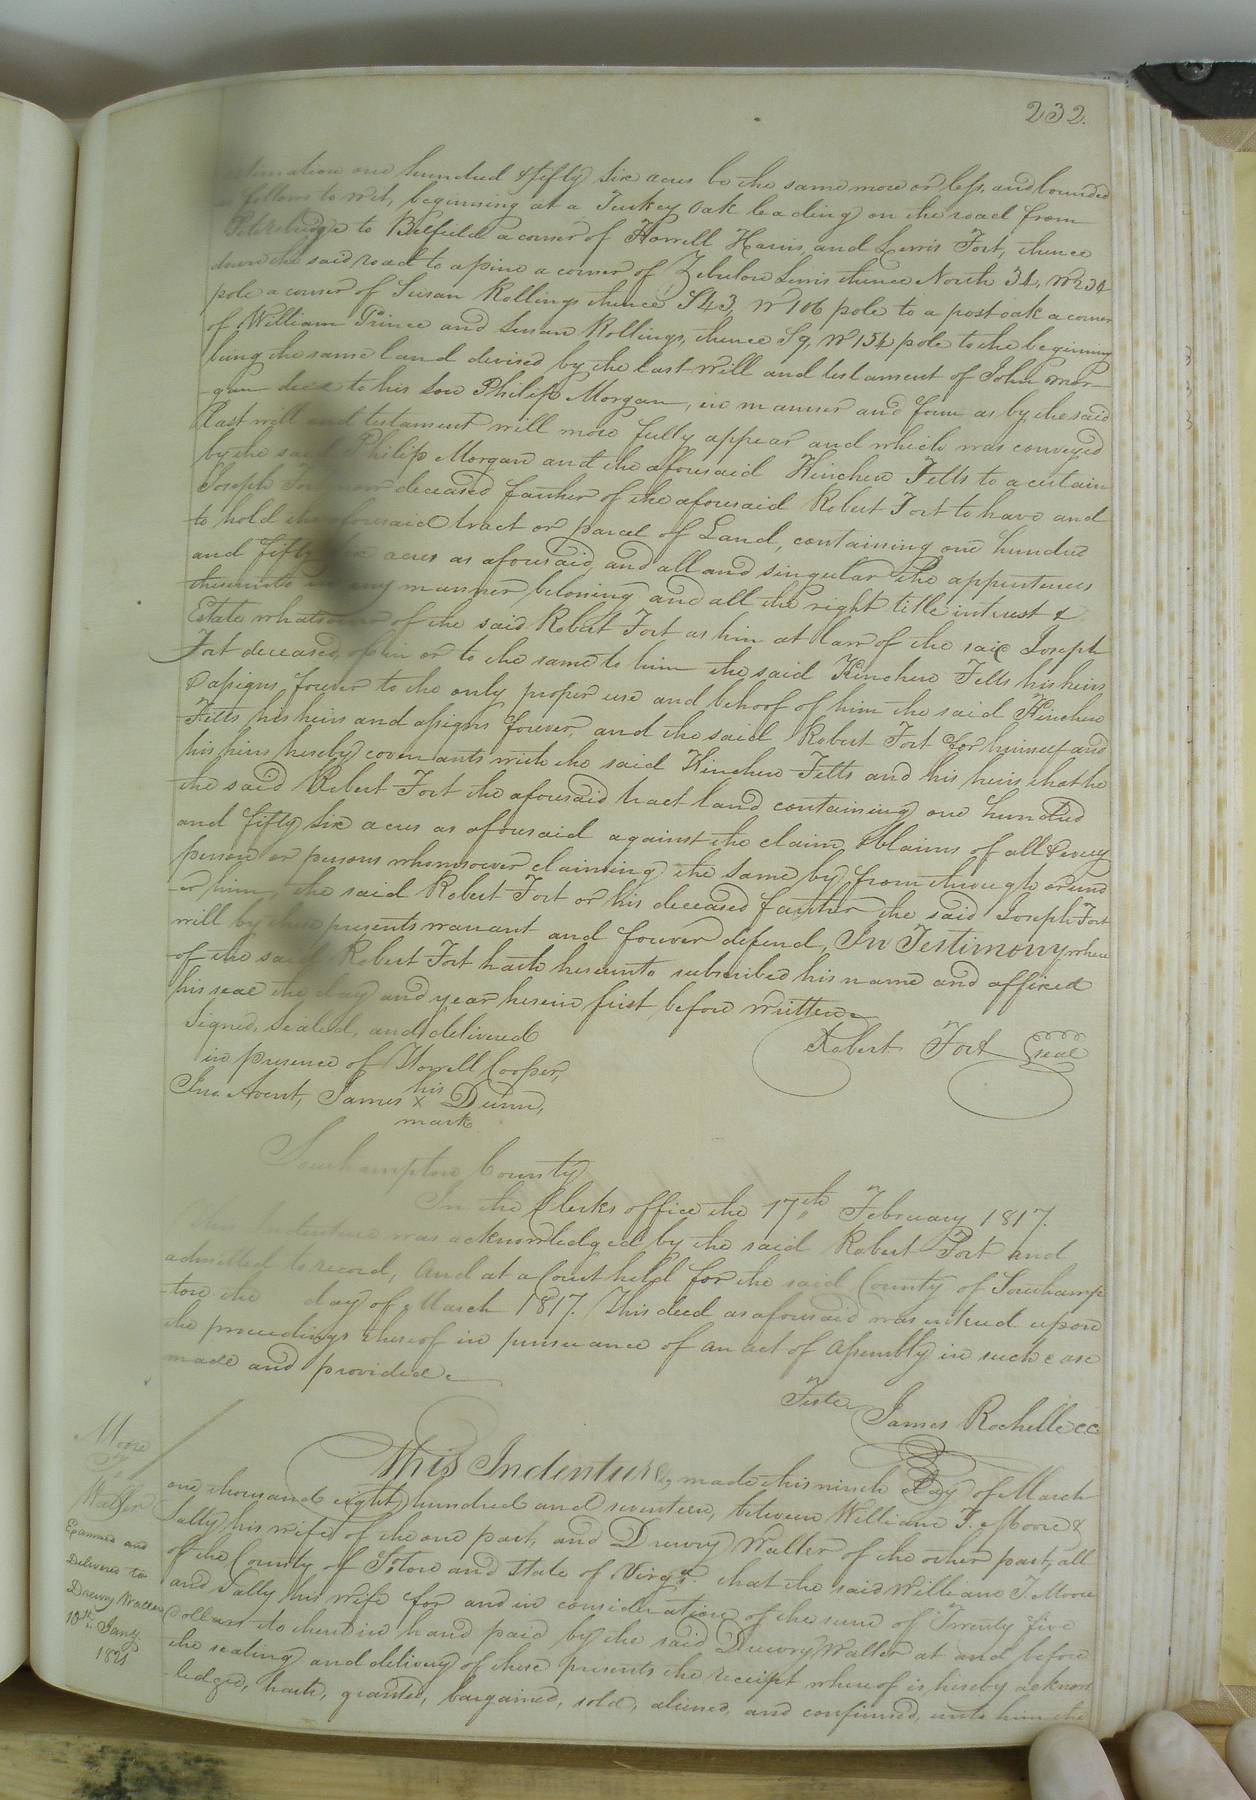 232.
estimation one hundred & fifty six acres be the same more or less, and bounded
as follows to wit, beginning at a Turkey Oak leading on the road from
Petersburg to Belfield a corner of Howell Harris and Lewis Fort, thence
down the said road to a pine a corner of Zebulon Lewis thence North 34, W 234
pole a corner of Susan Rollings thence S43, W 106 pole to a post oak a corner
of William Prince and Susan Rollings, thence S9, W 154 pole to the beginning
being the same land devised by the last will and testament of John Mor-
-gan decd to his son Philip Morgan, in manner and form as by the said
last will and testament will more fully appear and which was conveyed
by the said Philip Morgan and the aforesaid Kinchen Felts to a certain
Joseph Fort now deceased father of the aforesaid Robert Fort to have and
to hold the aforesaid tract or parcel of Land, containing one hundred
and fifty six acres as aforesaid, and all and singular the appurtences
thereunto in any manner beloning and all the right title interest &
Estate whatsoever of the said Robert Fort as him at law of the said Joseph
Fort deceased, of in or to the same to him the said Kinchen Felts his heirs
& assigns forever to the only proper use and behoof of him the said Kinchen
Felts his heirs and assigns forever, and the said Robert Fort for himself and
his heirs hereby covenants with the said Kinchen Felts and his heirs that he
the said Robert Fort the aforesaid tract land containing one hundred
and fifty six acres as aforesaid against the claim & claims of all & every
person or persons whomsoever claiming the same by from through or und
-er him, the said Robert Fort or his deceased farther the said Joseph Fort
will by these presents warrant and forever defend, In Testimony where
of the said Robert Fort hath hereunto subscribed his name and affixed
his seal the day and year herein first before written
Signed, Sealed, and delivered
in presence of Howell Cooper,
Robert Fort Seal
his
Jno Avent, James x Dunn,
mark
Southampton County
In the Clerks office the 17th February 1817.
This Indenture was acknowledged by the said Robert Fort and
admitted to record, And at a Court held for the said County of Southamp
-ton the day of March 1817. This deed as aforesaid was entered upon
the proceedings thereof in pursuance of an act of Assembly in such case
made and provided
Teste
James Rochelle CC
Moore
to
Waller
Examined and
Delivered to
Drewry Waller
10th Jany
This Indenture, made this ninth day of March
one thousand eight hundred and seventeen, between William T. Moore &
Sally his wife of the one part, and Drewry Waller of the other part, all
of the County of S.ton and State of Virga. that the said William T. Moore
and Sally his wife for and in consideration of the sum of Twenty five
dollars to them in hand paid by the said Drewry Waller at and before
the sealing and delivery of these presents the receipt whereof is hereby acknow
-ledged, hath, granted, bargained, sold, aliened, and confirmed, unto him the